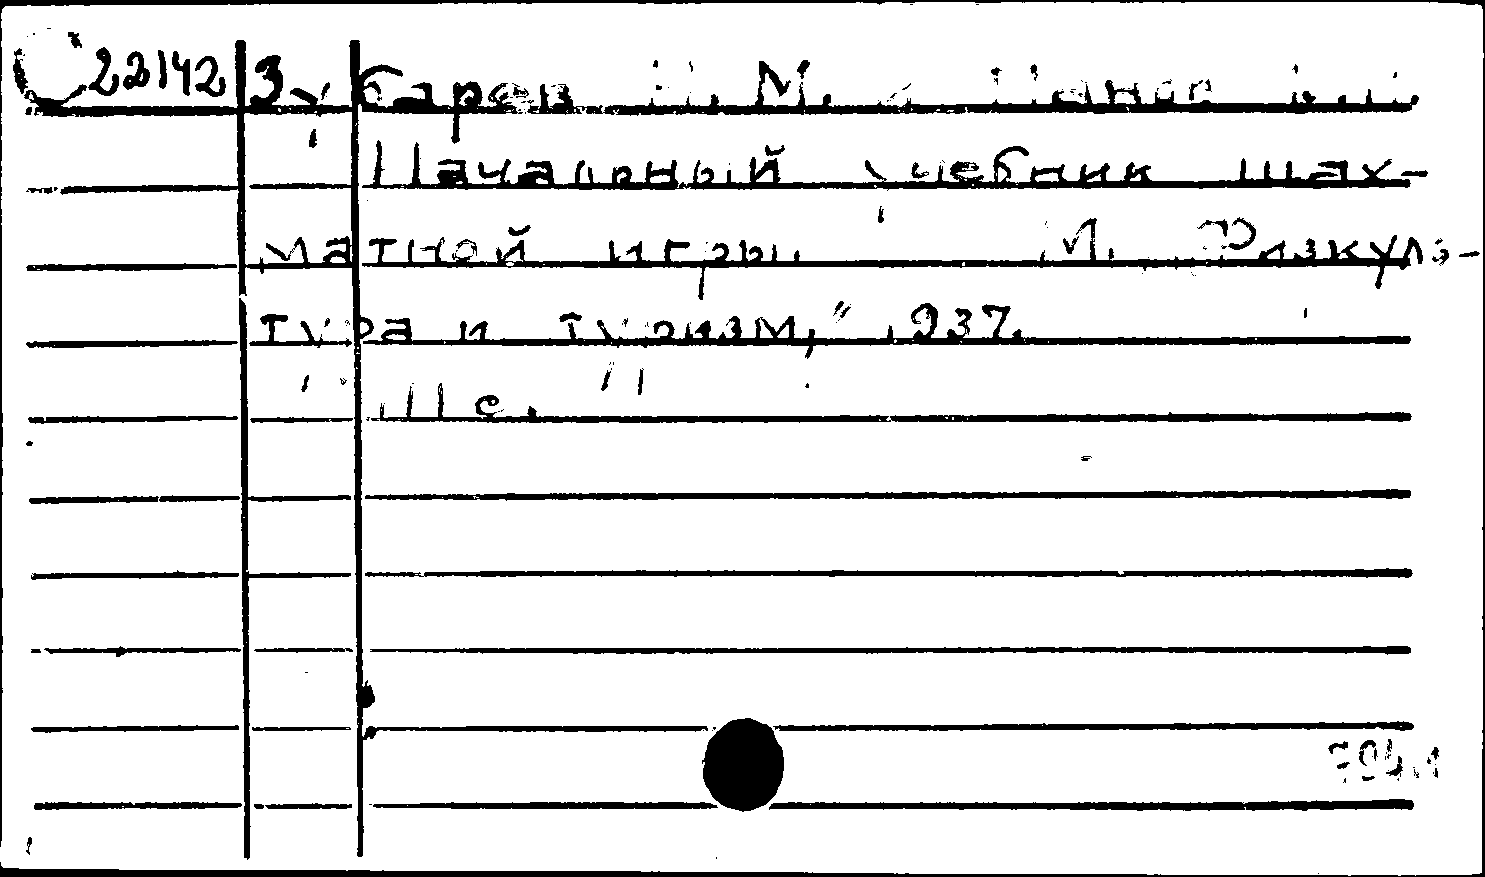 22142 Зубарев Н. М. и Панов В.Н.
Начальный учебник шах-
матной игры. М. "Физкуль-
тура и туризм," 1937.
111 с.
794.1